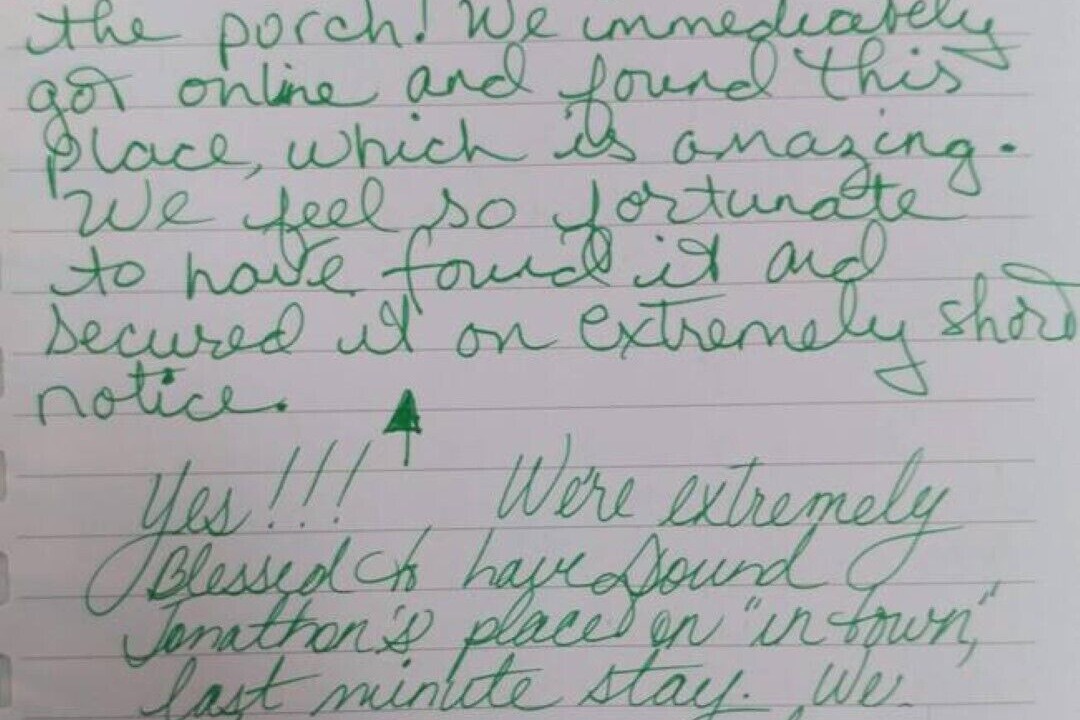 the porch! We immediately
got online and found this
place, which is amazing.
We feel so fortunate
to have found it and
secured it on extremely short
notice.
Yes!!! We're extremely
Blessed to have found
Jonathon's place on "in town,"
last minute stay. We